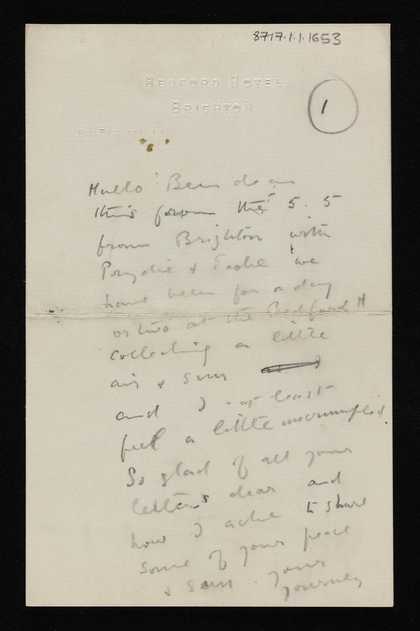 8717.1.1.1653
1
BEDFORD HOTEL
BRIGHTON
Hullo Ben do
this from the 5.5
from Brighton with
& we
have been for a day
or two at the Bedford H
collecting a little
air & sun
and I at least
feel a little
So glad of all your
letters dear and
how I ache to share
some of your peace
& sun. your
journey